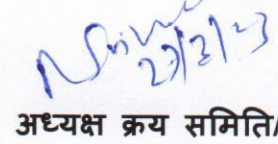 27/2/23
अध्यक्ष क्रय समिति/